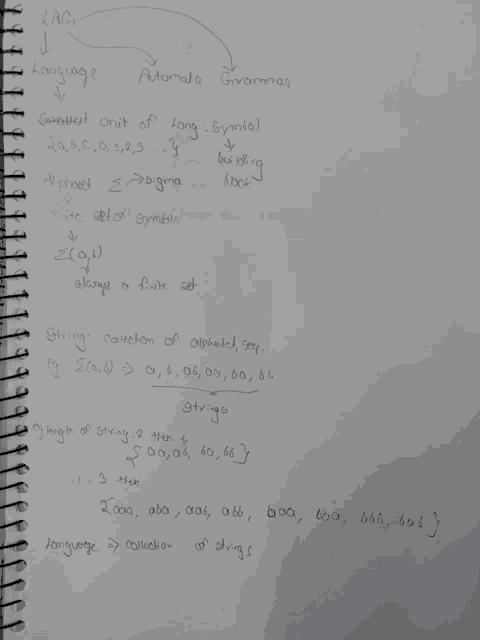 LAG
Language Automata Grammar
Smallest unit of Lang: Symbol
{a, b, c, 0, 1, 2, 3 ...} building
Alphabet Σ → sigma block
finite set of symbols
Σ(a, b)
always a finite set
String: collection of alphabet, seq.
eg Σ(a, b) ⇒ a, b, ab, aa, ba, bb
strings
length of string 2 then
{aa, ab, ba, bb}
= 3 then
{aaa, aba, aab, abb, baa, bba, bbb, bab}
Language ⇒ collection of strings